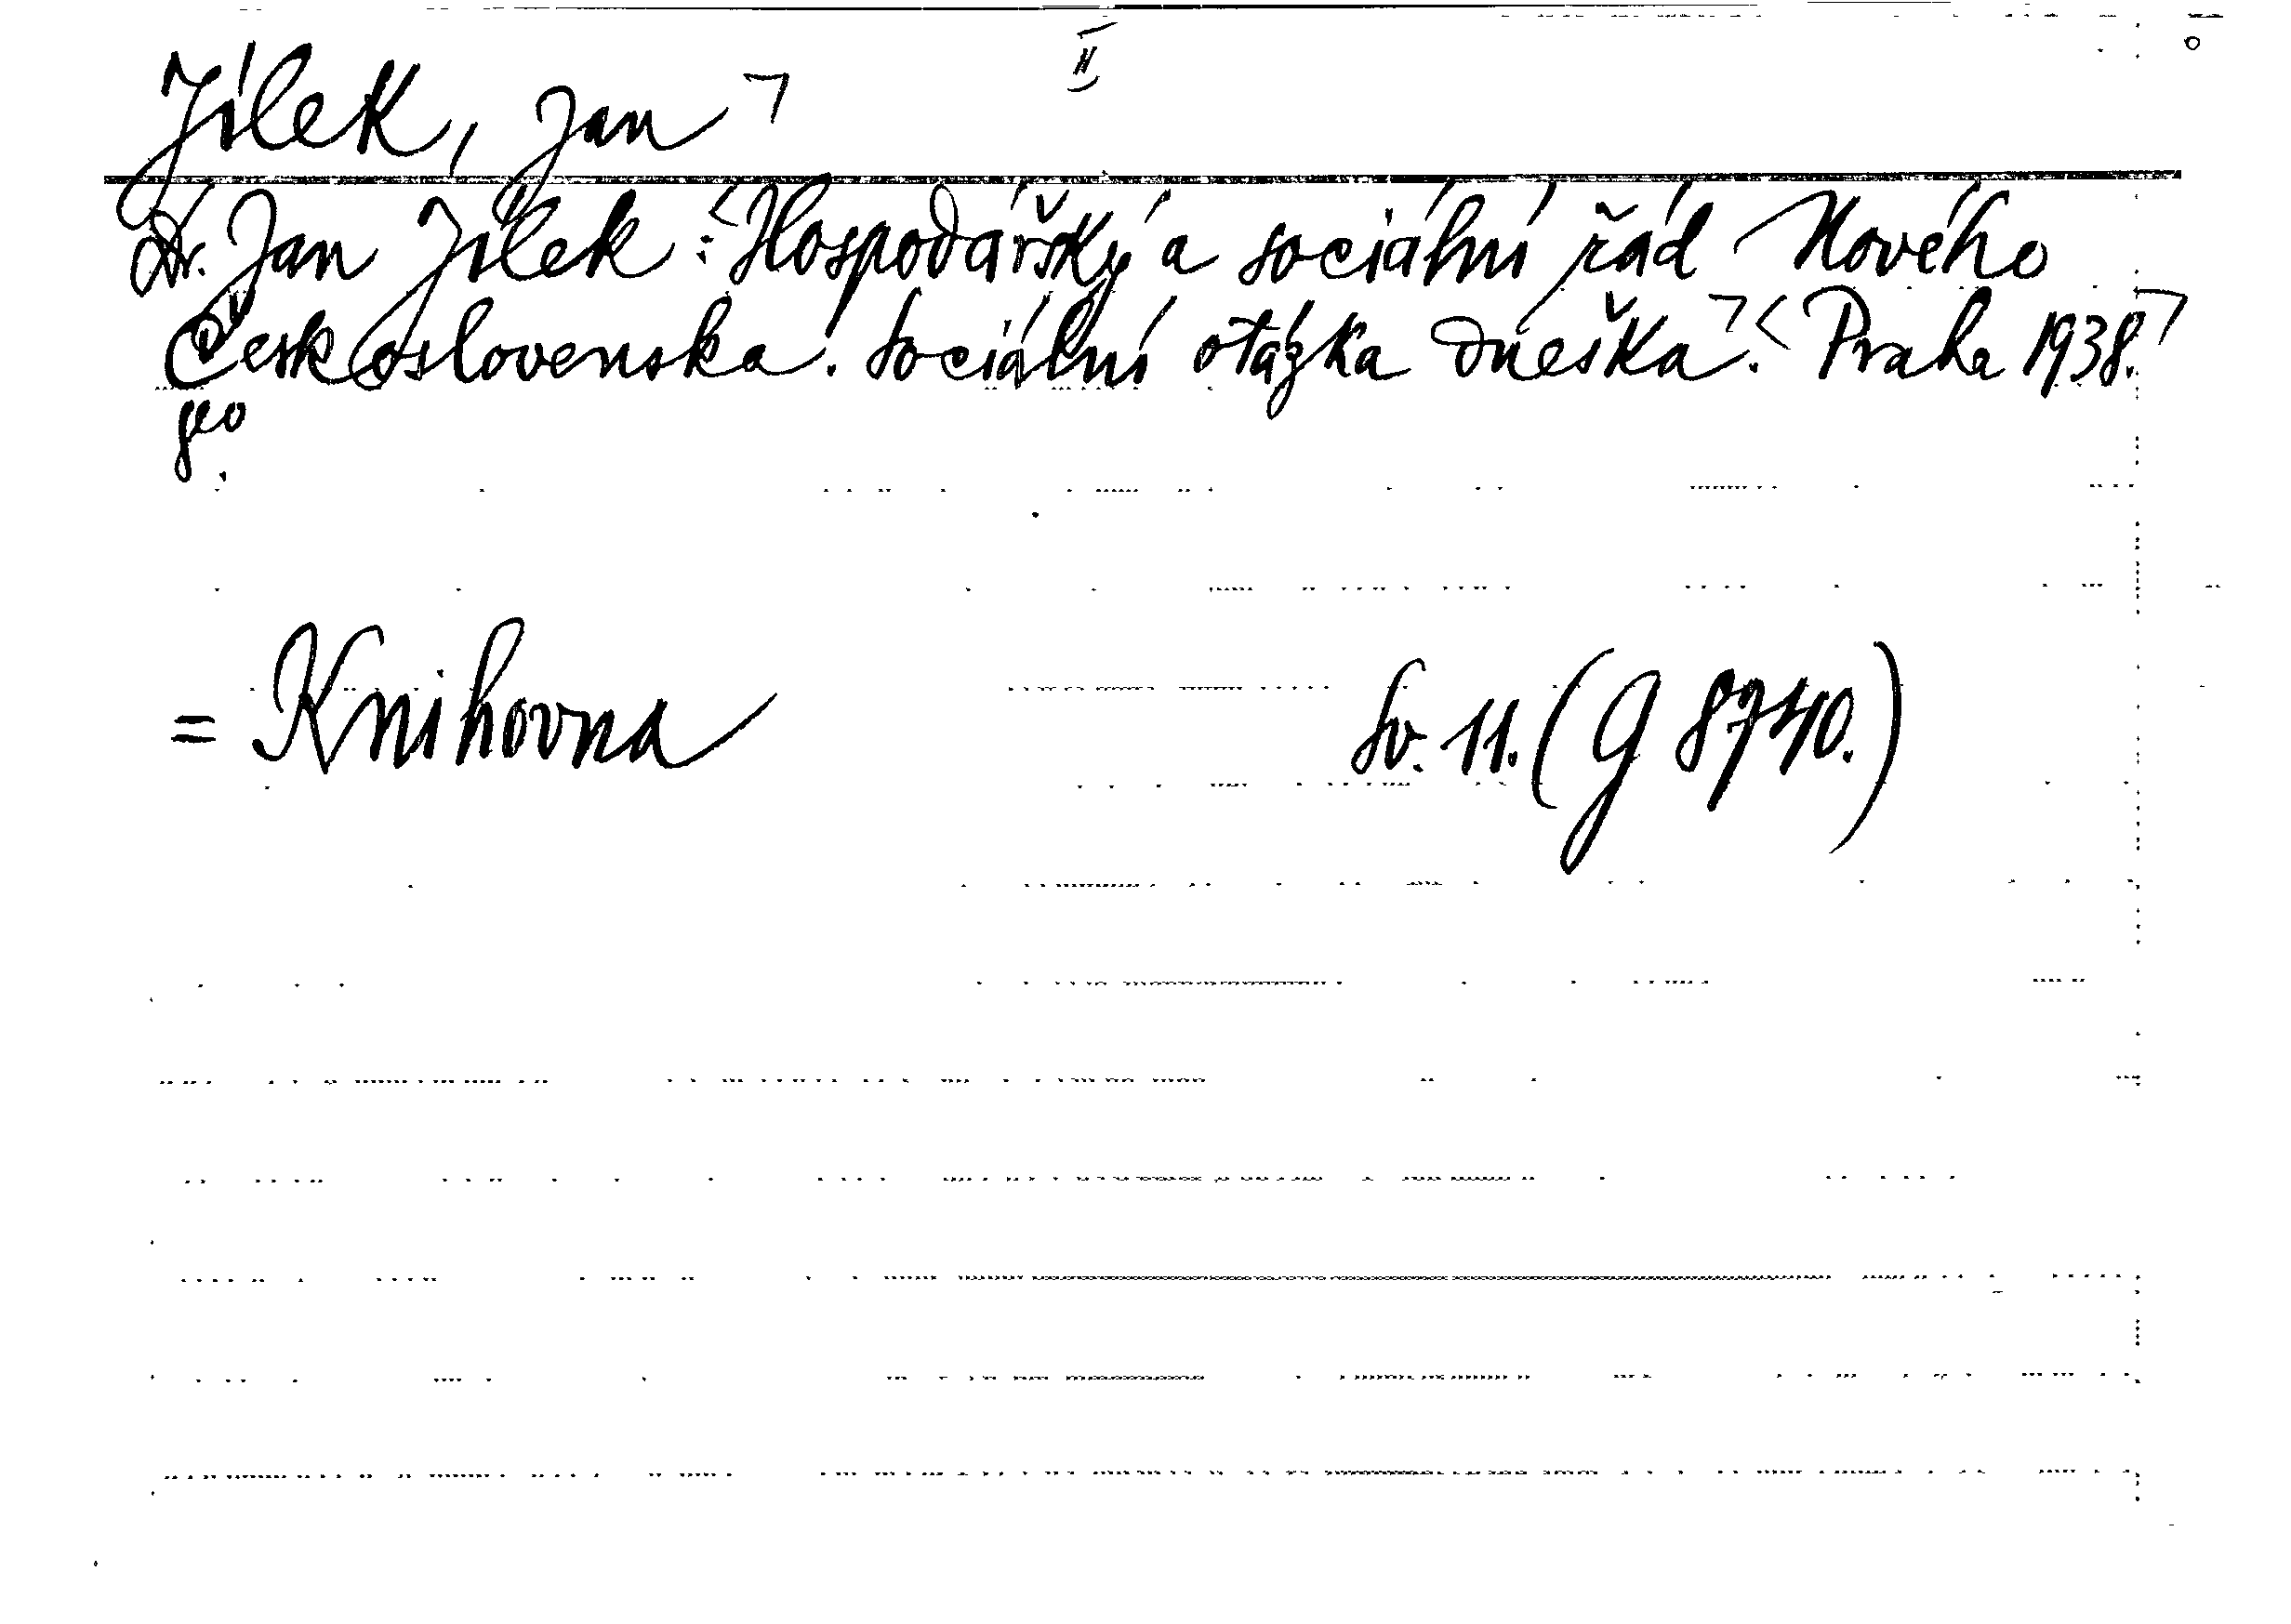 II
Jílek, Jan ㄱ
Dr. Jan Jílek: <Hospodářský a sociální řád Nového
Československa. Sociální otázka dneška ㄱ. < Praha 1938.ㄱ
8°.
= Knihovna Sv. 11. (G 8740.)